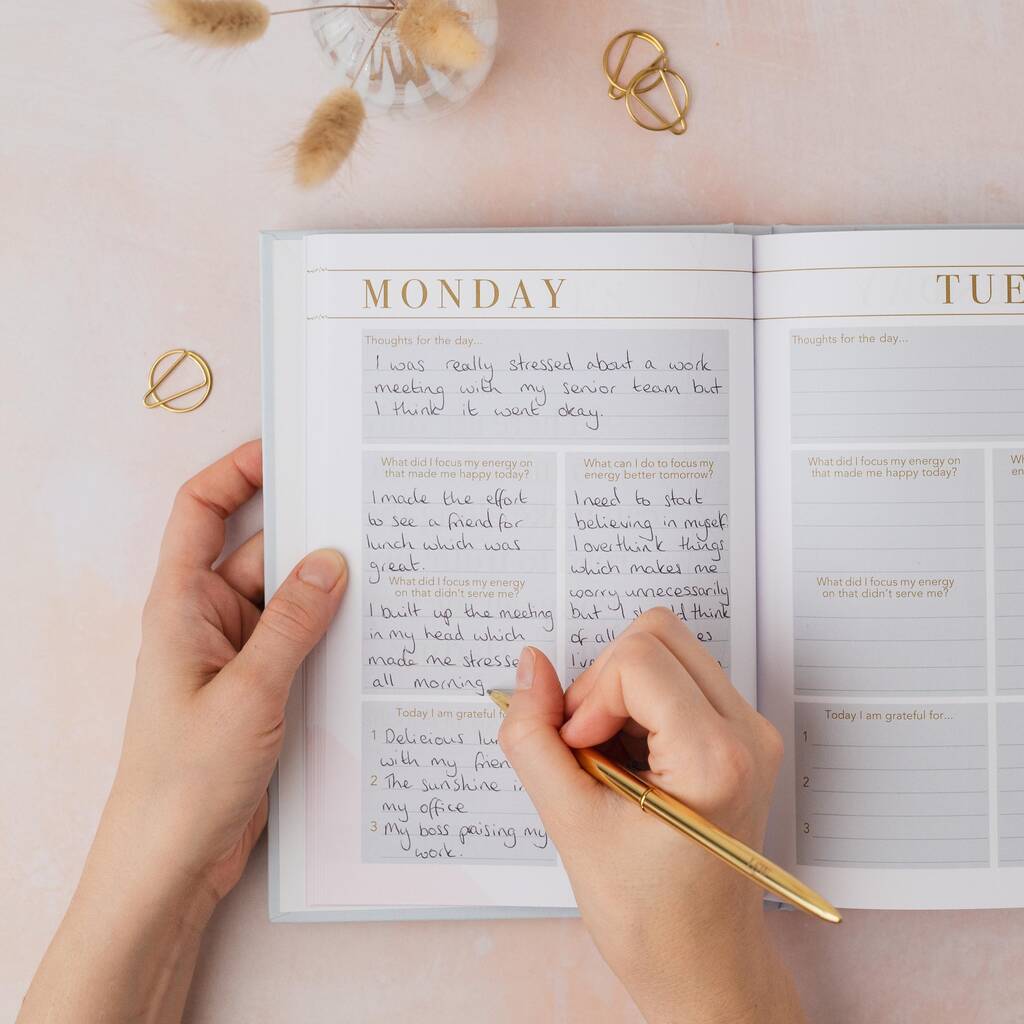 MONDAY
Thoughts for the day...
I was really stressed about a work
meeting with my senior team but
I think it went okay.
What did I focus my energy on
that made me happy today?
I made the effort
to see a friend for
lunch which was
great.
What did I focus my energy
on that didn't serve me?
I built up the meeting
in my head which
made me stressed
all morning
What can I do to focus my
energy better tomorrow?
I need to start
believing in myself.
I overthink things
which makes me
worry unnecessarily
but I should think
of all
I've
Today I am grateful
1 Delicious
with my
2 The sunshine
my office
3 My boss praising my
work.
TUE
Thoughts for the day...
What did I focus my energy on
that made me happy today?
What did I focus my energy
on that didn't serve me?
Today I am grateful for...
1
2
3